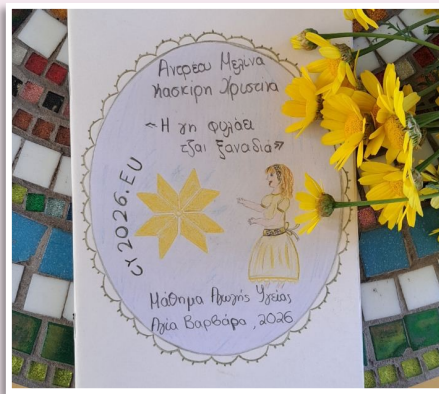 Ανδρέου Μελίνα
Κασκίρη Χριστίνα
"Η γη φυλάει
τζαι ξαναδιά"
CY2026.EU
Μάθημα Αγωγής Υγείας
Αγία Βαρβάρα, 2026